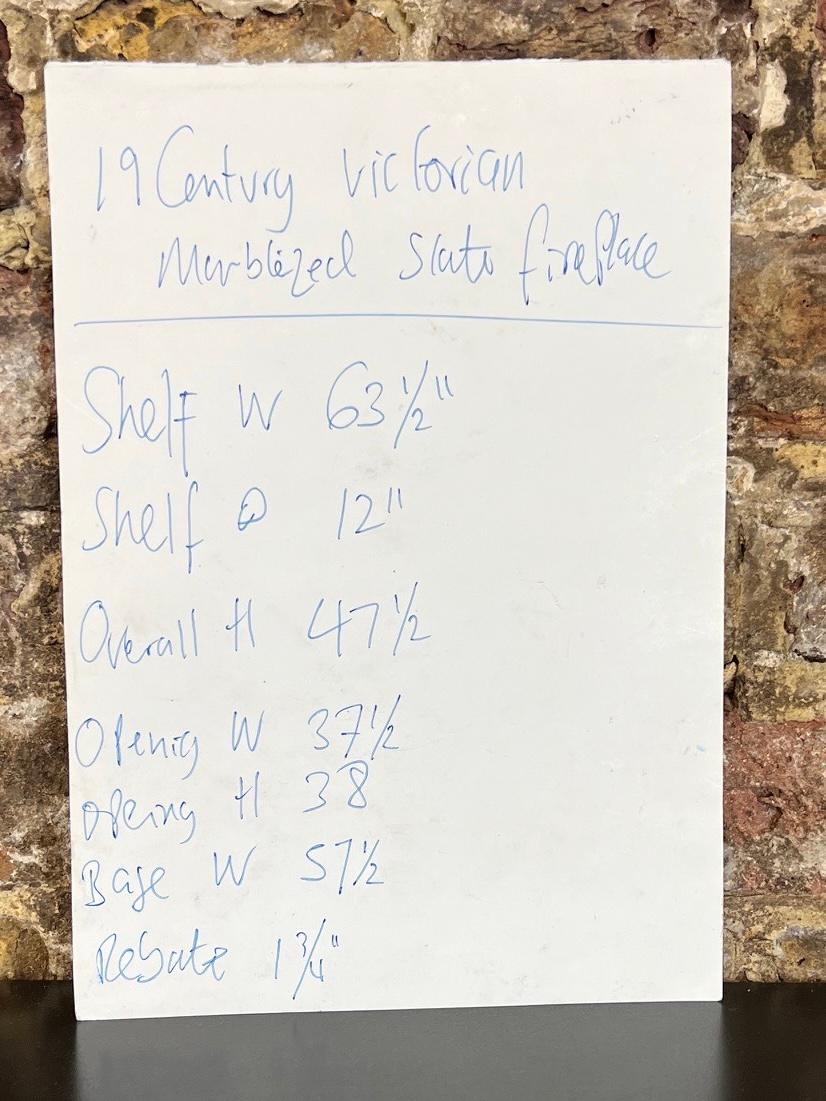 19 Century Victorian
Marblized Slate fireplace
Shelf W 63 1/2"
Shelf D 12"
Overall H 47 1/2
Openig W 37 1/2
Opeing H 38
Base W 57 1/2
Rebate 1 3/4"